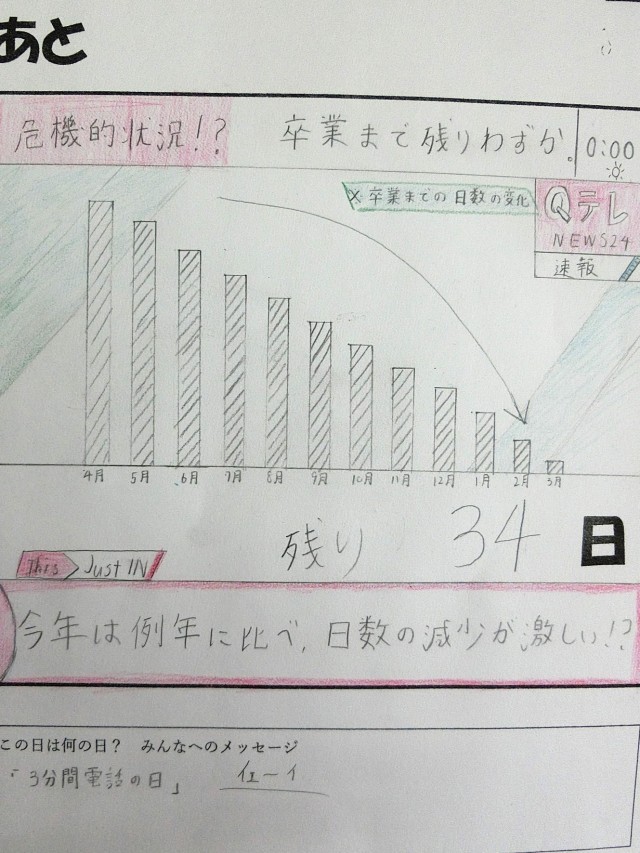 あと
危機的状況!? 卒業まで残りわずか。 0:00
※卒業までの日数の変化
Qテレ
NEWS24
速報
4月 5月 6月 7月 8月 9月 10月 11月 12月 1月 2月 3月
残り 34 日
This Just IN
今年は例年に比べ、日数の減少が激しい!?
この日は何の日? みんなへのメッセージ
・「3分間電話の日」